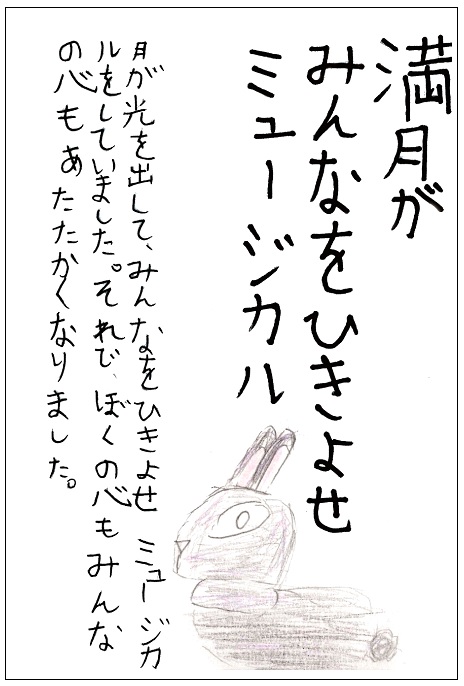 満月が
みんなをひきよせ
ミュージカル
月が光を出して、みんなをひきよせ ミュージカ
ルをしていました。それで、ぼくの心もみんな
の心もあたたかくなりました。